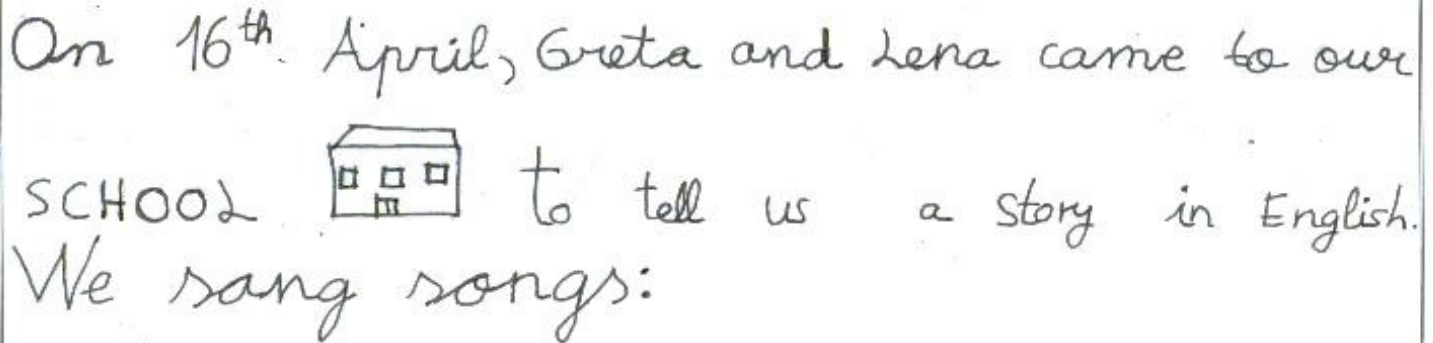 On 16th. April, Greta and Lena came to our
SCHOOL to tell us a story in English.
We sang songs: